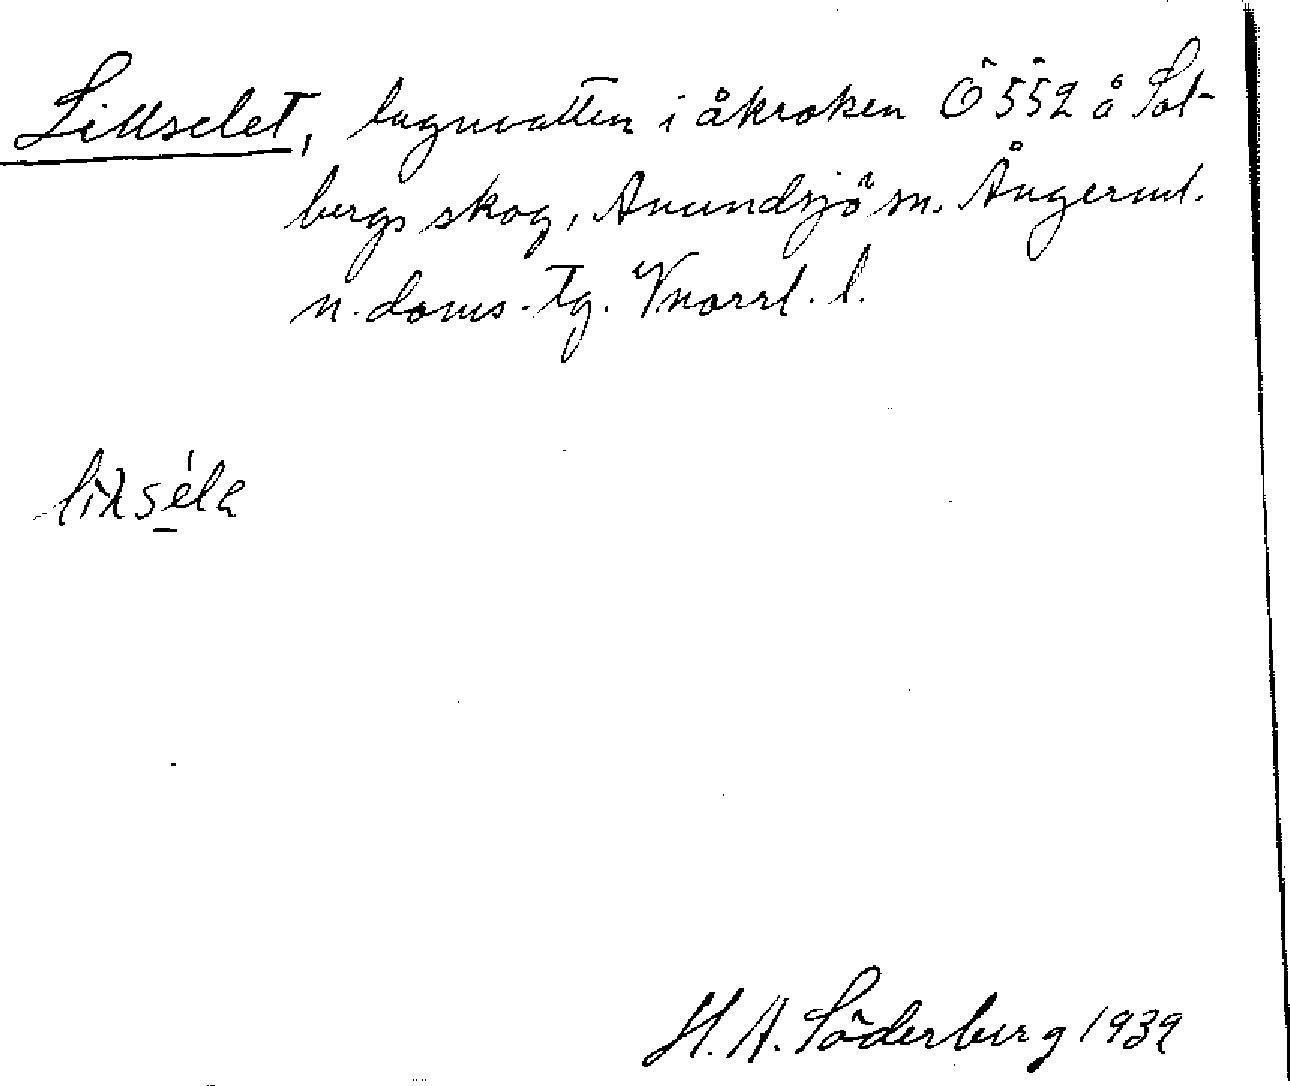 Lillselet, lugnvatten i åkroken Ö 552 å Sol-
bergs skog, Anundsjö sn. Ångerml.
n. doms. tg. Vnorrl. l.
H. A. Söderberg 1939